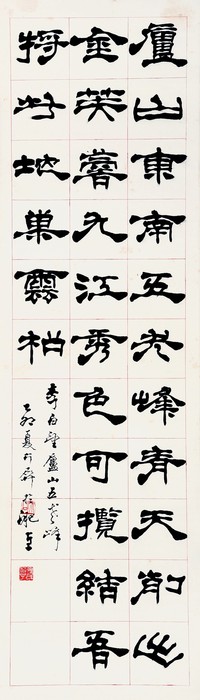 廬山東南五老峰青天削出
金芙蓉九江秀色可攬結吾
將此地巢雲松
李白望廬山五老峰
卯夏